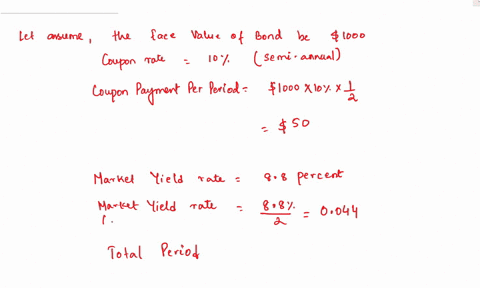 Let assume, the face Value of Bond be $1000
Coupon rate = 10% (semi-annual)
Coupon Payment Per Period = $1000 × 10% × 1/2
= $50
Market Yield rate = 8.8 percent
Market Yield rate = 8.8%/2 = 0.044
Total Period